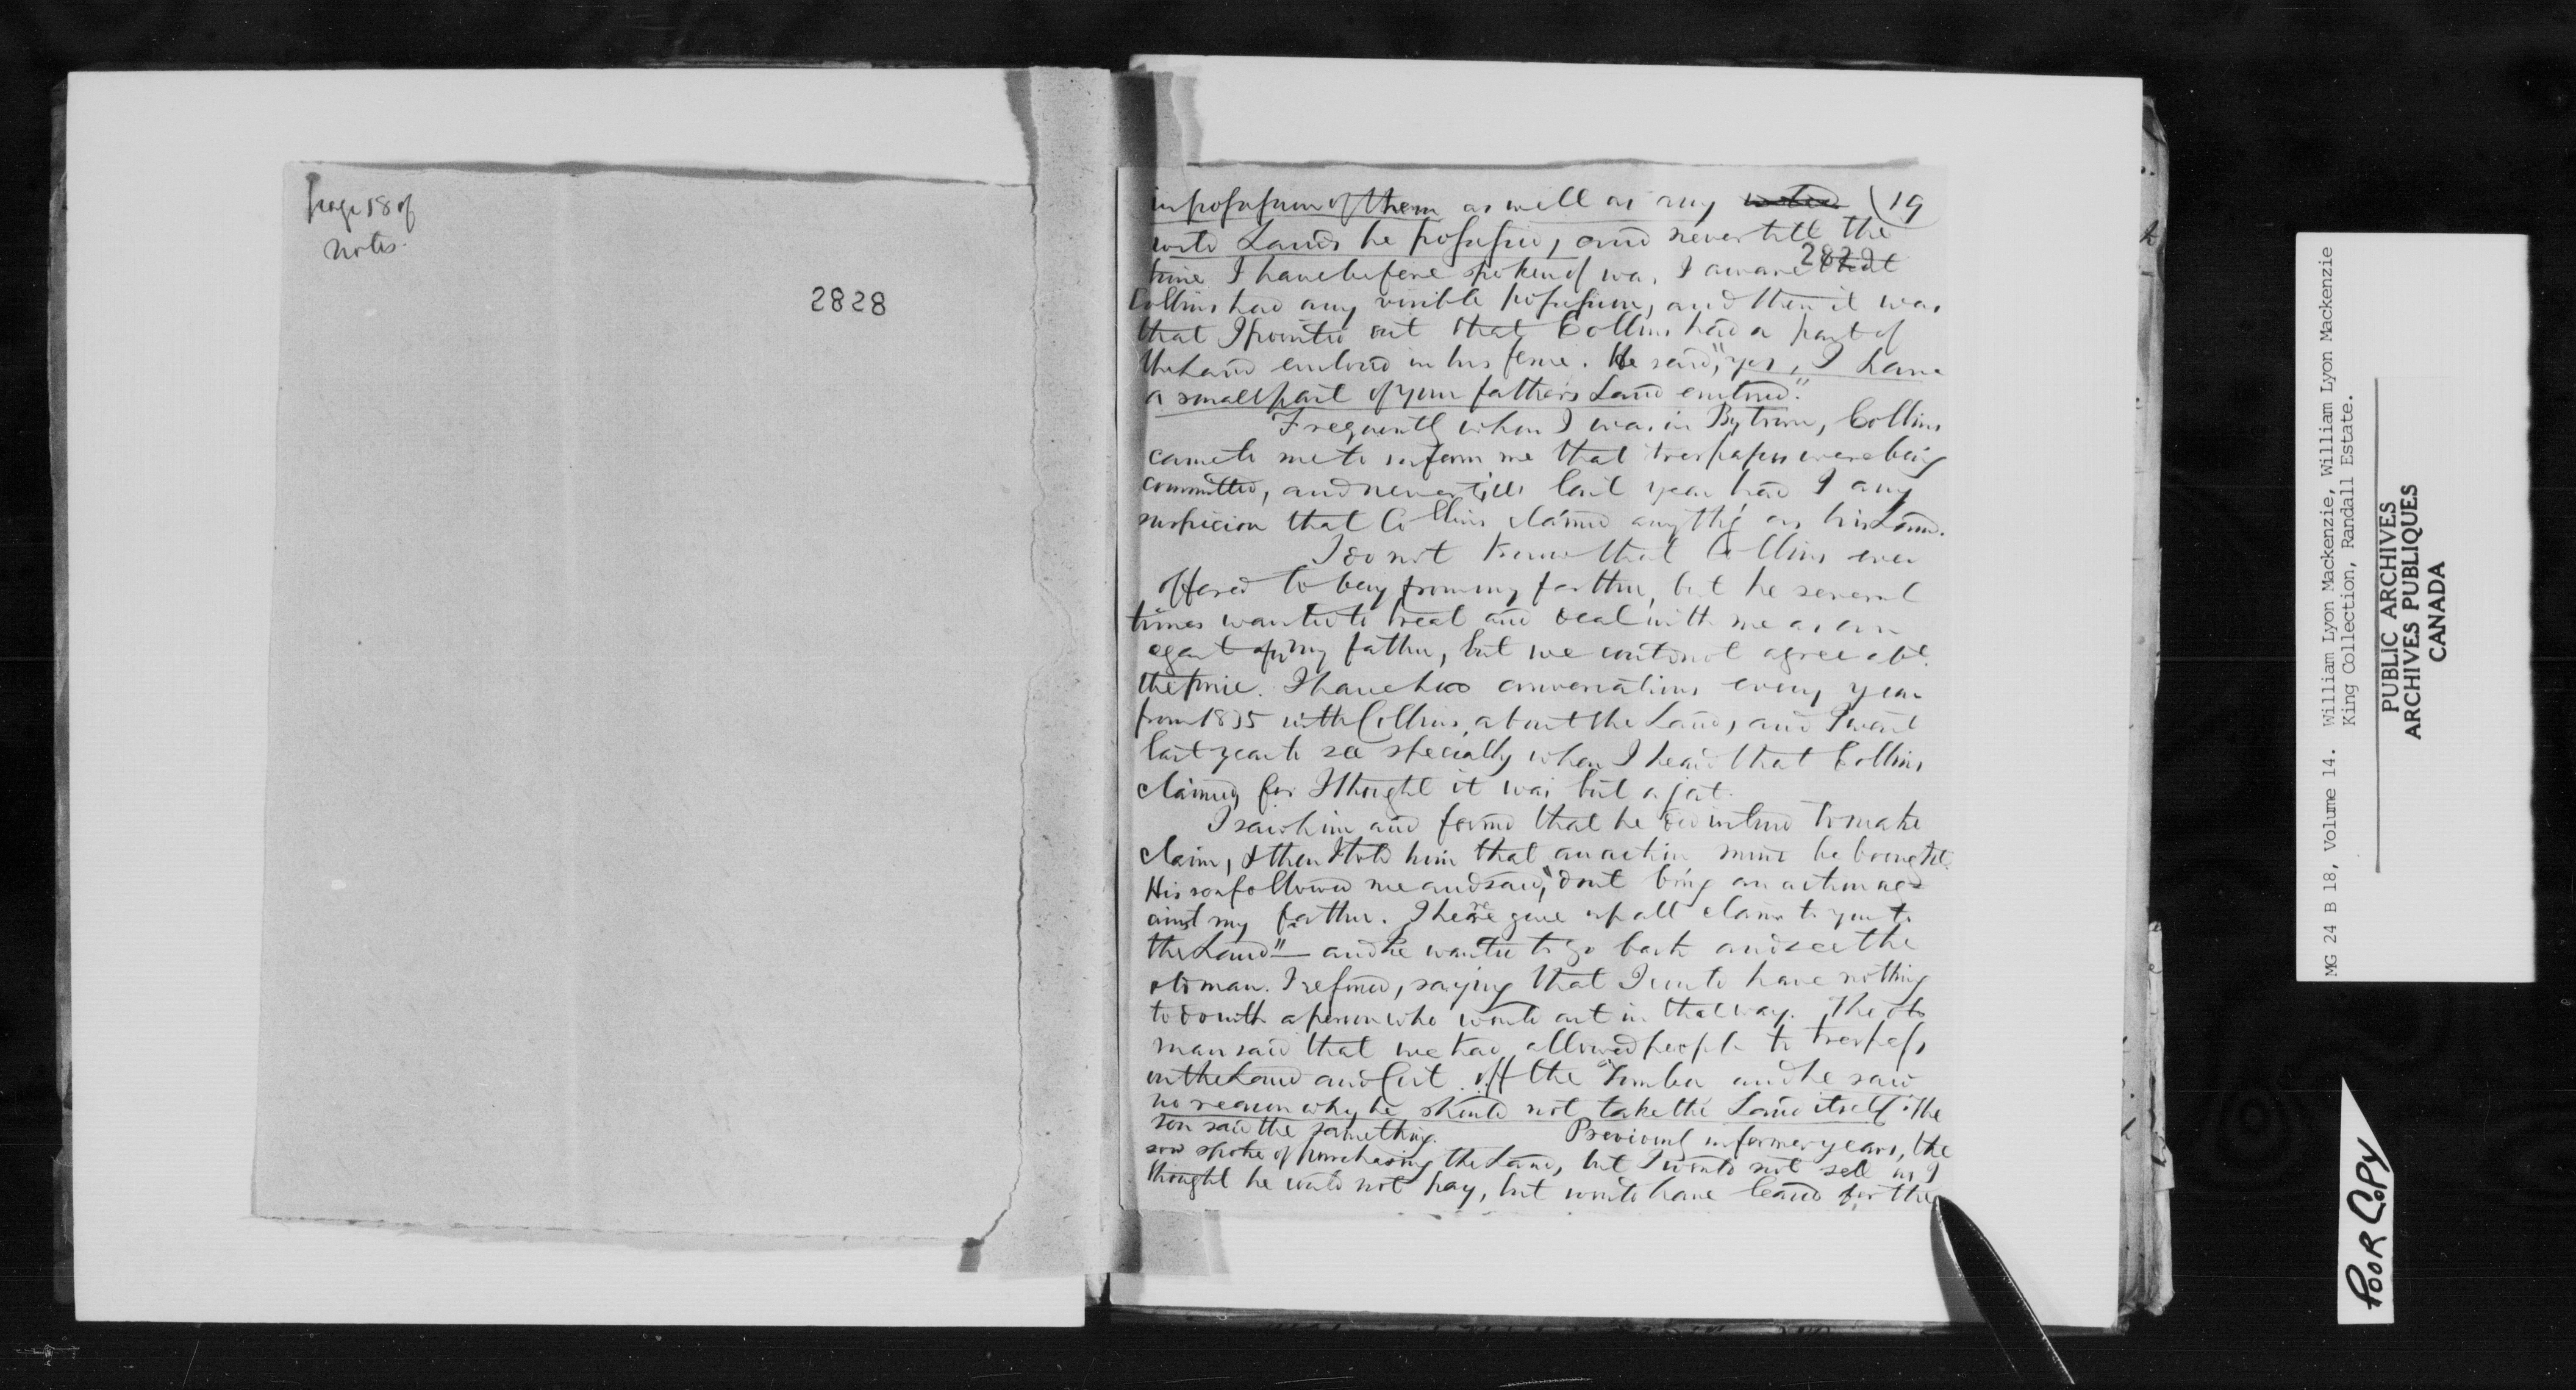 page 18 of
notes.
2828
in possession of them as well as any (19
wild Lands he possessed, and never till the
2829
time I have before spoken of was I aware that
Collins had any visible possession, and then it was
that I pointed out that Collins had a part of
the Land enclosed in his fence. He said, "yes, I have
a small part of your father's Land enclosed."
Frequently when I was in Bytown, Collins
came to me to inform me that trespasses were being
committed, and never till last year had I any
suspicion that Collins claimed anythg as his Land.
I do not know that Collins ever
offered to buy from my father, but he several
times wanted to treat and deal with me as an
agent of my father, but we could not agree abt
the price. I have had conversations every year
from 1835 with Collins, about the Land, and I went
last year to see specially when I heard that Collins
claimed, for I thought it was but a jest.
I saw him and found that he did intend to make
claim, & then I told him that an action must be brought.
His son followed me and said, "dont bring an action ag-
ainst my father. I here give up all claim to you to
the Land" — and he wanted to go back and see the
old man. I refused, saying that I wd have nothing
to do with a person who would act in that way. The old
man said that we had allowed people to trespass
on the Land and cut off the Timber and he saw
no reason why he should not take the Land itself. The
son said the same thing. Previously in former years, the
son spoke of purchasing the Land, but I would not sell as I
thought he would not pay, but would have leased for the
MG 24 B 18, Volume 14. William Lyon Mackenzie, William Lyon Mackenzie
King Collection, Randall Estate.
PUBLIC ARCHIVES
ARCHIVES PUBLIQUES
CANADA
POOR COPY